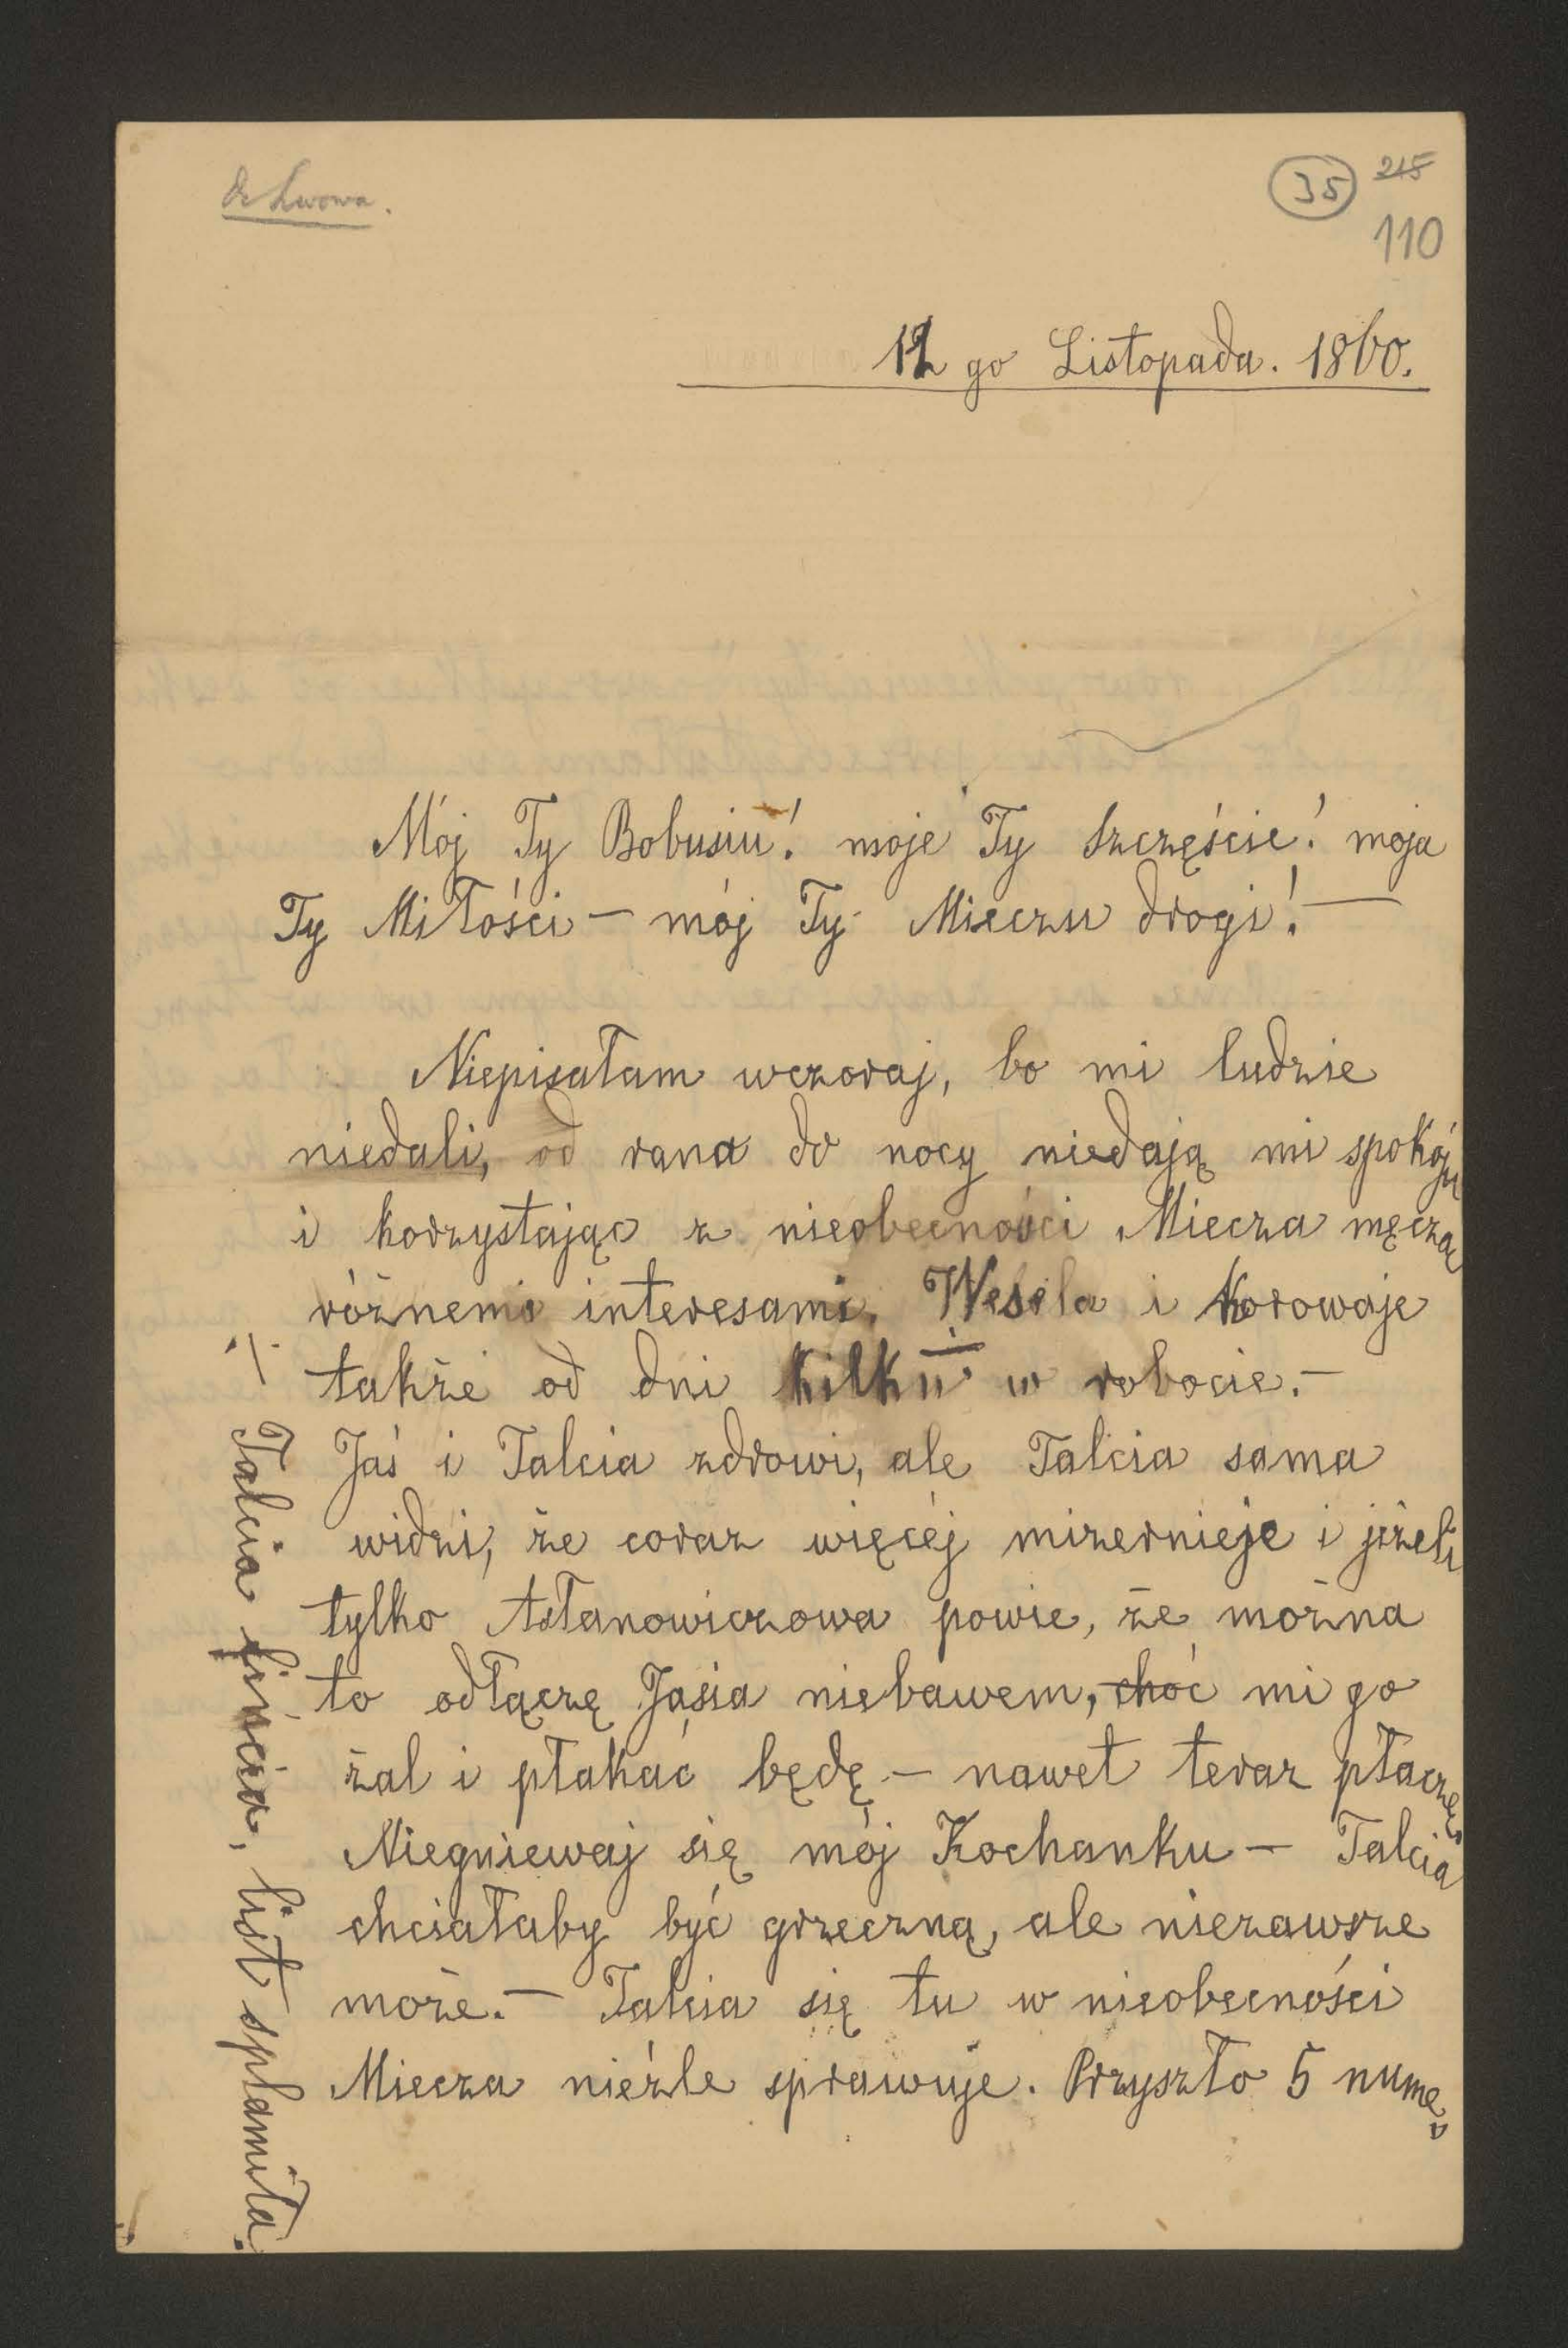 do Lwowa.
35 215
110
12 go Listopada. 1860.
Mój Ty Bobusiu! moje Ty Szczęście! moja
Ty Miłości — mój Ty Mieczu drogi! —
Niepisałam wczoraj, bo mi ludzie
niedali, od rana do nocy niedają mi spokóju
i korzystając z nieobecności Miecza męczą
różnemi interesami. Wesela i Korowaje
także od dni kilku w robocie. —
Jaś i Talcia zdrowi, ale Talcia sama
widzi, że coraz więcéj mizernieje i jeżeli
tylko Astanowiczowa powie, że można
to odłączę Jasia niebawem, choć mi go
żal i płakać będę — nawet teraz płaczę
Niegniewaj się mój Kochanku — Talcia
chciałaby być grzeczną, ale niezawsze
może. — Talcia się tu w nieobecności
Miecza nieźle sprawuje. Przyszło 5 nume„
Talcia fincia, list splamiła.